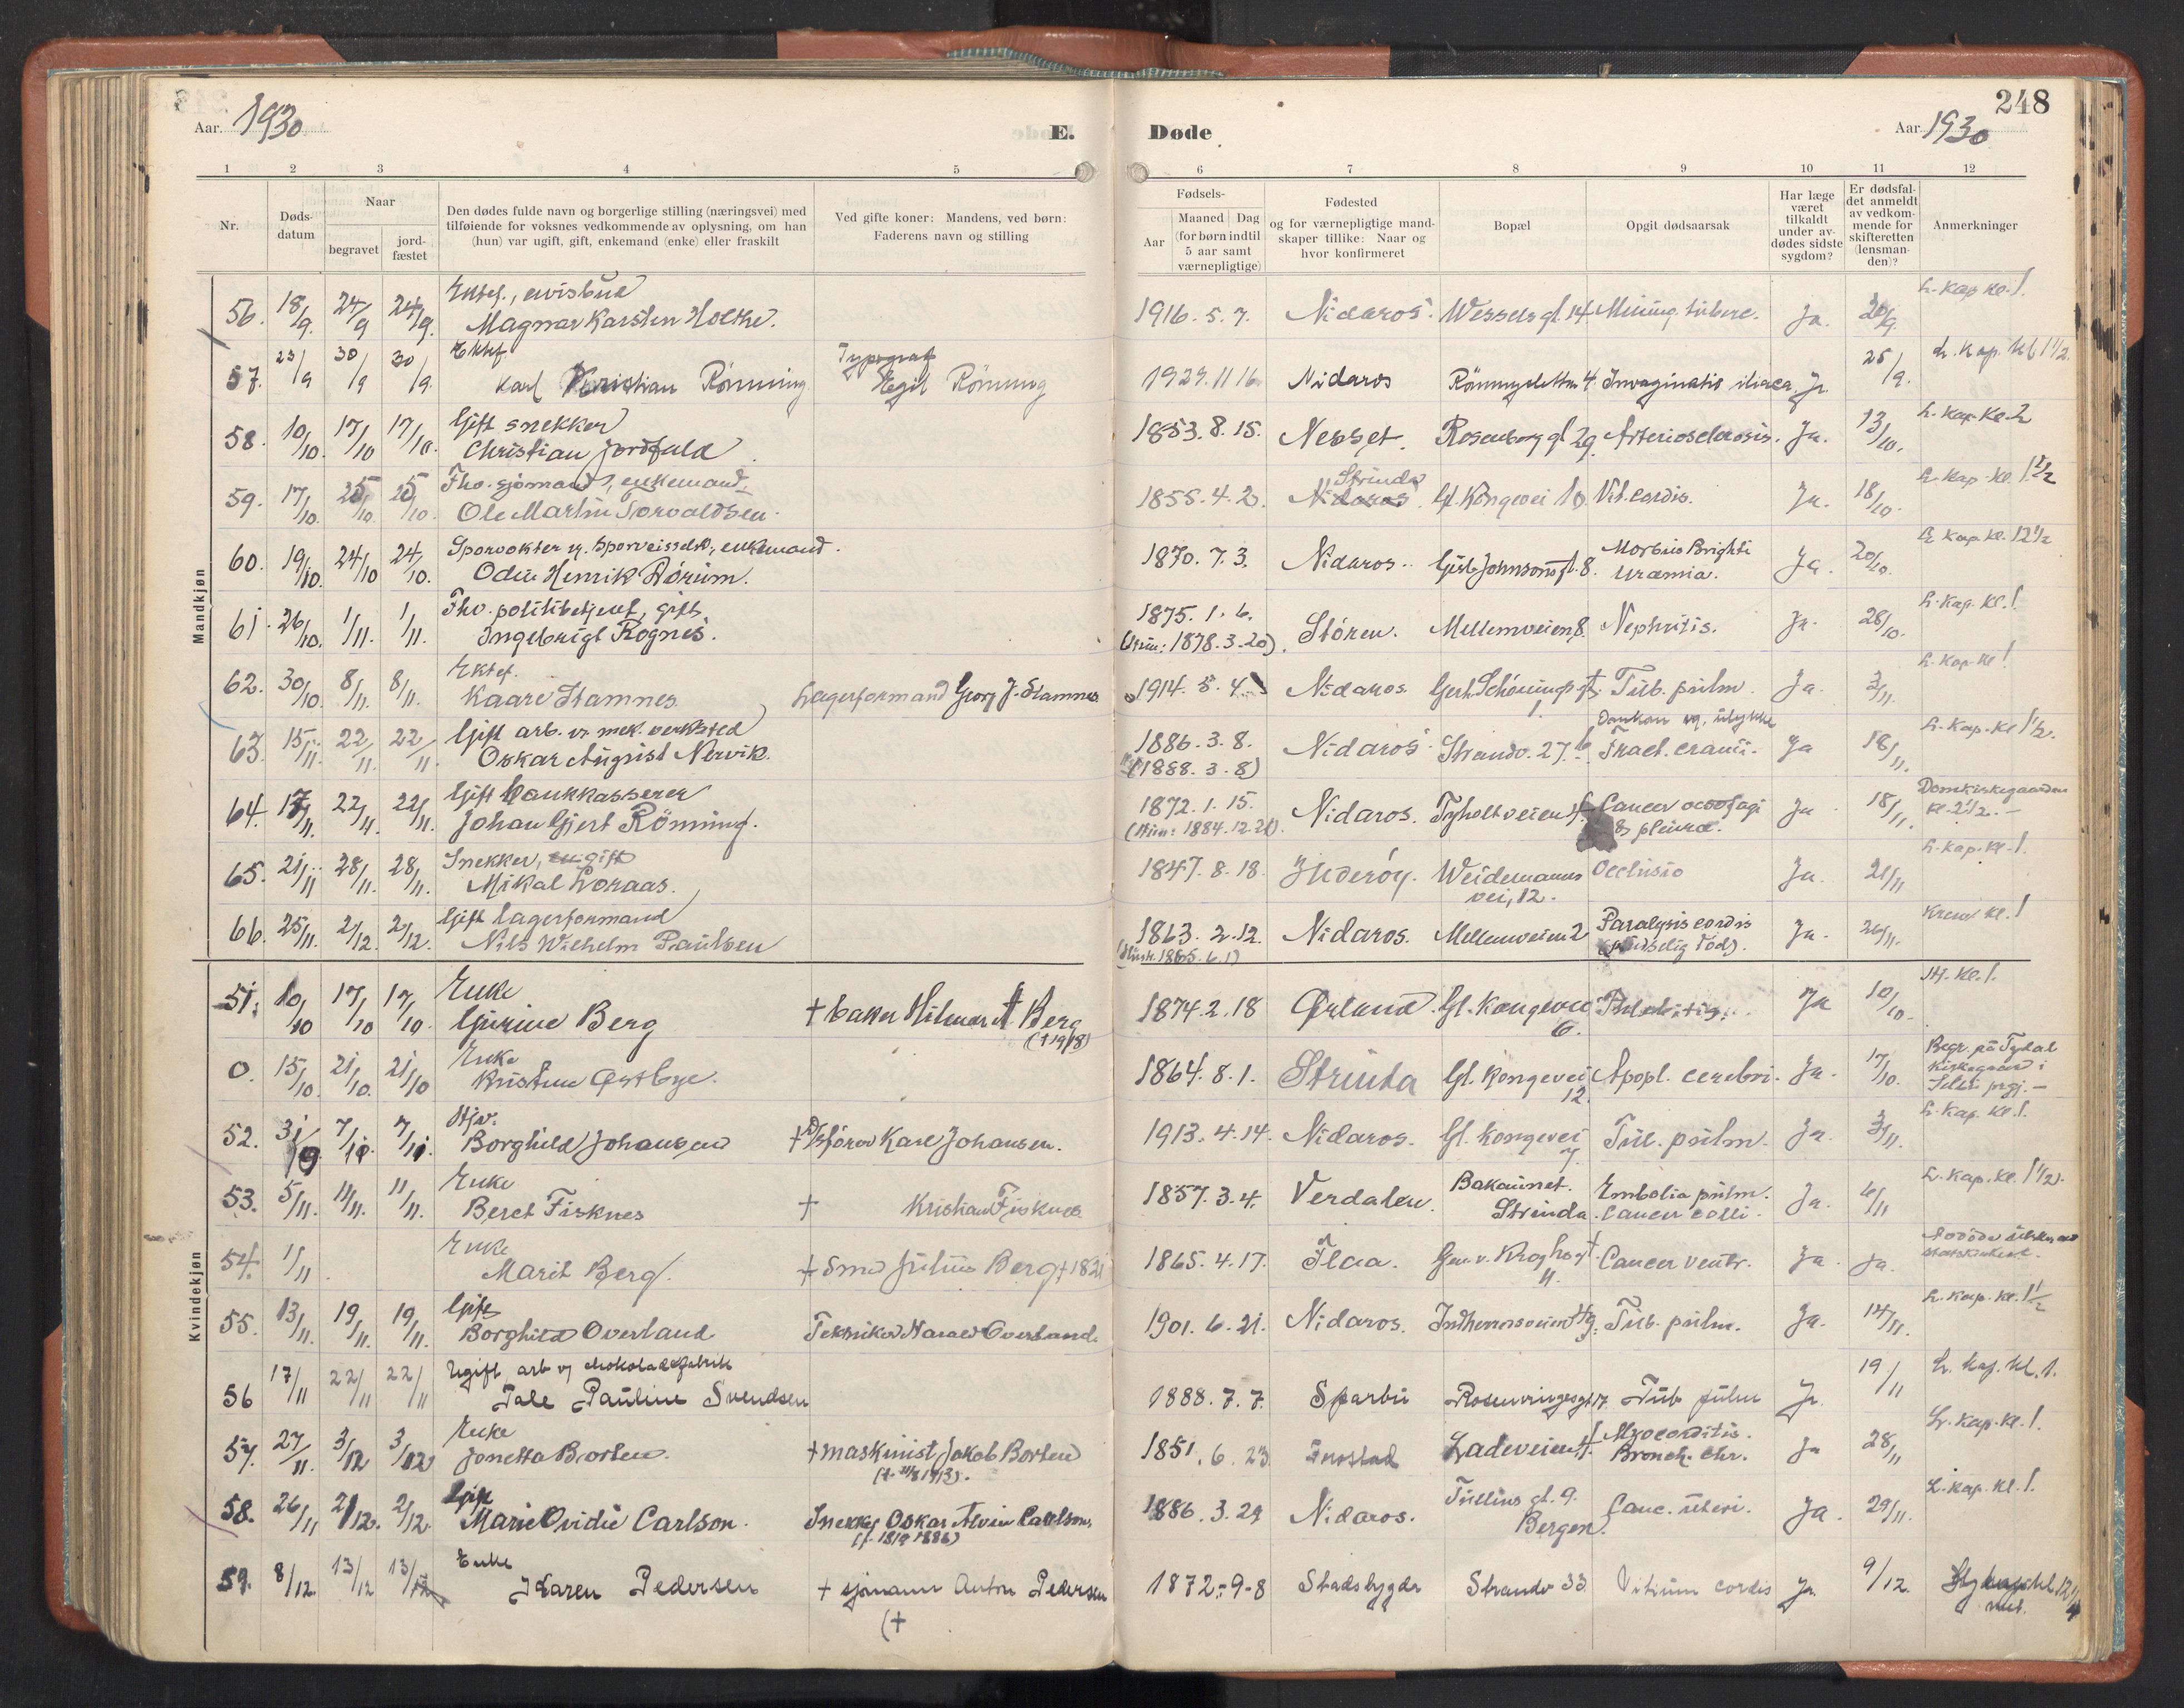 248
Aar. 1930 E. Døde Aar 1930
1 2 3 4 5 6 7 8 9 10 11 12
Nr. Døds-datum Naar begravet jord-fæstet Den dødes fulde navn og borgerlige stilling (næringsvei) med tilføiende for voksnes vedkommende av oplysning, om han (hun) var ugift, gift, enkemand (enke) eller fraskilt Ved gifte koner: Mandens, ved børn: Faderens navn og stilling Fødsels- Aar Maaned Dag (for børn indtil 5 aar samt værnepligtige) Fødested og for værnepligtige mand-skaper tillike: Naar og hvor konfirmeret Bopæl Opgit dødsaarsak Har læge været tilkaldt under av-dødes sidste sygdom? Er dødsfal-det anmeldt av vedkom-mende for skifteretten (lensman-den)? Anmerkninger
Mandkjøn
Ektef., avisbud L. kap. kl. 1.
56. 18/9. 24/9 24/9. Magnar Karsten Holthe. 1916. 5. 7. Nidaros. Wessels gt. 14. Mening. tuberc. Ja. 20/9.
Ektef. Typograf L. kap. kl. 1 1/2.
57. 23/9 30/9 30/9. Karl Kristian Rönning Egil Rönning 1929. 11 16 Nidaros 4. Invaginatio iliaca. Ja. 25/9.
Gift snekker L. kap. kl. 2
58. 10/10. 17/10 17/10. Christian Jordfald 1853. 8. 15. Nesset. Rosenborg gt 29. Arteriosclerosis. Ja. 13/10.
Fhv. sjömand, enkemand. Strinda L. kap. kl. 1 1/2
59. 17/10. 25/10. 25/10. Ole Martin Torvaldsen. 1855. 4. 2. Nidaros Gl. Kongevei 10. Vit. cordis. Ja. 18/10.
Sporvokter v. sporveisselsk., enkemand. Morbus Brighti L. kap. kl. 12 1/2
60. 19/10. 24/10 24/10. Odin Henrik Dörum. 1870. 7. 3. Nidaros. Gisle Johnsons gt. 8. Uræmia. Ja. 20/10.
Fhv. politibetjent, gift L. kap. kl. 1.
61. 26/10. 1/11. 1/11. Ingebrigt Rognes. 1875. 1. 6. Stören. Mellemveien 8. Nephritis. Ja. 28/10.
(Hun: 1878. 3. 20).
Ektef. L. kap. kl 1
62. 30/10. 8/11. 8/11. Kaare Stamnes. Lagerformand Georg J. Stamnes 1914. 5. 4. Nidaros. Gerh. Schönings gt. 1. Tub. pulm. Ja. 3/11.
Gift arb. v. mek. verksted L. kap. kl 1 1/2.
63. 15/11. 22/11. 22/11. Oskar August Nervik. 1886. 3. 8. Nidaros. Strandv. 27. b. Fract. cranii. Ja 18/11.
(1888. 3. 8)
Gift bankkasserer Domkirkegaarden
64. 17/11. 22/11. 22/11. Johan Gjert Rönning. 1872. 1. 15. Nidaros. Tyholtveien 4. Cancer oesofagi & pleura. Ja 18/11. kl. 2 1/2. -
(Hun: 1884. 12. 21).
Snekker, gift L. kap. kl. 1.
65. 21/11 28/11. 28/11. Mikal Loraas. 1847. 8. 18. Inderöy. Weidemanns vei, 12. Occlusio Ja. 21/11
Gift lagerformand Krem kl. 1
66. 25/11. 2/12. 2/12. Nils Wilhelm Paulsen 1863. 2. 12. Nidaros. Mellemveien 2 Paralysis cordis (pludselig död). Ja. 26/11.
(Hustr. 1865. 6. 1)
Kvindekjøn
Enke kl. 1.
51. 10/10 17/10 17/10. Gurine Berg + baker Hilmar A. Berg (+ 1918) 1874. 2. 18 Ørland. Gl. Kongevei 6. Ja 10/10.
Enke Begr. på Tydal kirkegaard i Selbu prgj. -
0. 15/10. 21/10. 21/10 Kristine Østbye. 1864. 8. 1. Strinda Gl. Kongevei 12. Apopl. cerebri. Ja. 17/10.
Hjv. L. kap. kl. 1.
52. 31/ 7/ 7/ Borghild Johansen + Karl Johansen. 1913. 4. 14. Nidaros. Gl. Kongevei 7. Tub. pulm. Ja. 3/11.
Enke Bakaunet. Embolia pulm. L. kap. kl. 1 1/2).
53. 5/11. 11/11. 11/11. Beret Fisknes + Kristian Fisknes 1857. 3. 4. Verdalen. Strinda. Cancer colli. Ja. 6/11
Enke
54. 1/11. Marit Berg. + Smed Julius Berg + 1865. 4. 17. Flaa. Gen. v. Kroghs gt. 11. Cancer ventr. Ja. Ja.
Gift L. kap. kl. 1 1/2
55. 13/11. 19/11. 19/11. Borghild Overland Tekniker Harald Overland. 1901. 6. 21. Nidaros. Indherrosveien 49. Tub. pulm. Ja. 14/11.
Ugift, arb v/ chokoladefabrik L. kap. kl. 1.
56 17/11 22/11 22/11 Tale Pauline Svendsen 1888. 7. 7. Sparbu Rosenvingesgt 17. Tub. pulm Ja. 19/11
Enke Myocarditis. L. kap. kl. 1.
57. 27/11. 3/12 3/12 Jonetta Borten. + maskinist Jakob Borten 1851. 6. 23 Ladeveien Bronch. chr. Ja 28/11
Gift Tullins gt. 9. L. kap. kl. 1.
58. 26/11 2/12. 2/12. Marie Ovidie Carlson. Snekker Oskar Alvin Carlson. 1886. 3. 29 Nidaros. Bergen. Canc. uteri. Ja. 29/11.
(f. 18/9 1886)
Enke
59. 8/12. 13/12 13/12 Karen Pedersen + sjömann Anton Pedersen 1872-9-8 Stadsbygda Strandv 33 Vitium cordis Ja. 9/12.
(+